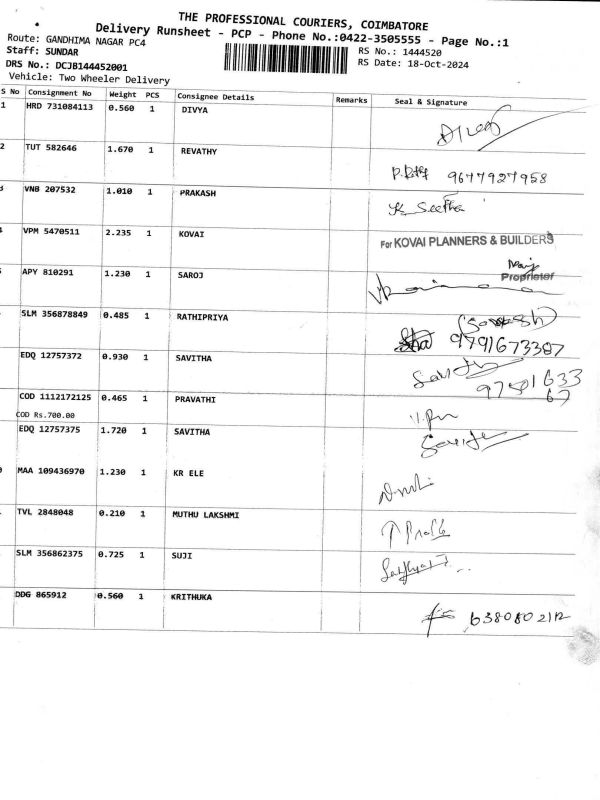 THE PROFESSIONAL COURIERS, COIMBATORE
Delivery Runsheet - PCP - Phone No.:0422-3505555 - Page No.:1
Route: GANDHIMA NAGAR PC4
RS No.: 1444520
Staff: SUNDAR
RS Date: 18-Oct-2024
DRS No.: DCJB144452001
Vehicle: Two Wheeler Delivery
S No Consignment No Weight PCS Consignee Details Remarks Seal & Signature
1 HRD 731084113 0.560 1 DIVYA
2 TUT 582646 1.670 1 REVATHY 9677927958
3 VNB 207532 1.010 1 PRAKASH K Seetha
VPM 5470511 2.235 1 KOVAI For KOVAI PLANNERS & BUILDERS
Proprietor
APY 810291 1.230 1 SAROJ
SLM 356878849 0.485 1 RATHIPRIYA 9791673387
EDQ 12757372 0.930 1 SAVITHA
COD 1112172125 0.465 1 PRAVATHI
COD Rs.700.00
EDQ 12757375 1.720 1 SAVITHA
MAA 109436970 1.230 1 KR ELE
TVL 2848048 0.210 1 MUTHU LAKSHMI
SLM 356862375 0.725 1 SUJI
DDG 865912 0.560 1 KRITHUKA